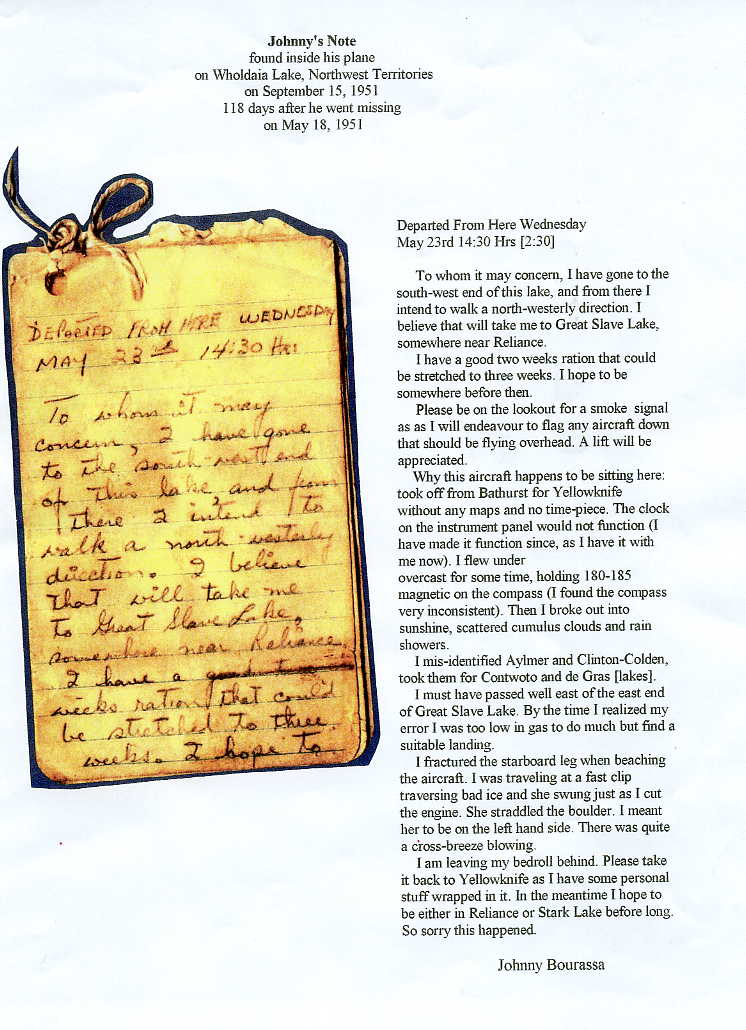 Johnny's Note
found inside his plane
on Wholdaia Lake, Northwest Territories
on September 15, 1951
118 days after he went missing
on May 18, 1951
DEPARTED FROM HERE WEDNESDAY
MAY 23rd 14:30 Hrs
To whom it may
concern, I have gone
to the south-west end
of this lake, and from
there I intend to
walk a north-westerly
direction. I believe
that will take me
to Great Slave Lake,
somewhere near Reliance.
I have a good two
weeks ration that could
be stretched to three
weeks. I hope to
Departed From Here Wednesday
May 23rd 14:30 Hrs [2:30]
To whom it may concern, I have gone to the
south-west end of this lake, and from there I
intend to walk a north-westerly direction. I
believe that will take me to Great Slave Lake,
somewhere near Reliance.
I have a good two weeks ration that could
be stretched to three weeks. I hope to be
somewhere before then.
Please be on the lookout for a smoke signal
as as I will endeavour to flag any aircraft down
that should be flying overhead. A lift will be
appreciated.
Why this aircraft happens to be sitting here:
took off from Bathurst for Yellowknife
without any maps and no time-piece. The clock
on the instrument panel would not function (I
have made it function since, as I have it with
me now). I flew under
overcast for some time, holding 180-185
magnetic on the compass (I found the compass
very inconsistent). Then I broke out into
sunshine, scattered cumulus clouds and rain
showers.
I mis-identified Aylmer and Clinton-Colden,
took them for Contwoto and de Gras [lakes].
I must have passed well east of the east end
of Great Slave Lake. By the time I realized my
error I was too low in gas to do much but find a
suitable landing.
I fractured the starboard leg when beaching
the aircraft. I was traveling at a fast clip
traversing bad ice and she swung just as I cut
the engine. She straddled the boulder. I meant
her to be on the left hand side. There was quite
a cross-breeze blowing.
I am leaving my bedroll behind. Please take
it back to Yellowknife as I have some personal
stuff wrapped in it. In the meantime I hope to
be either in Reliance or Stark Lake before long.
So sorry this happened.
Johnny Bourassa